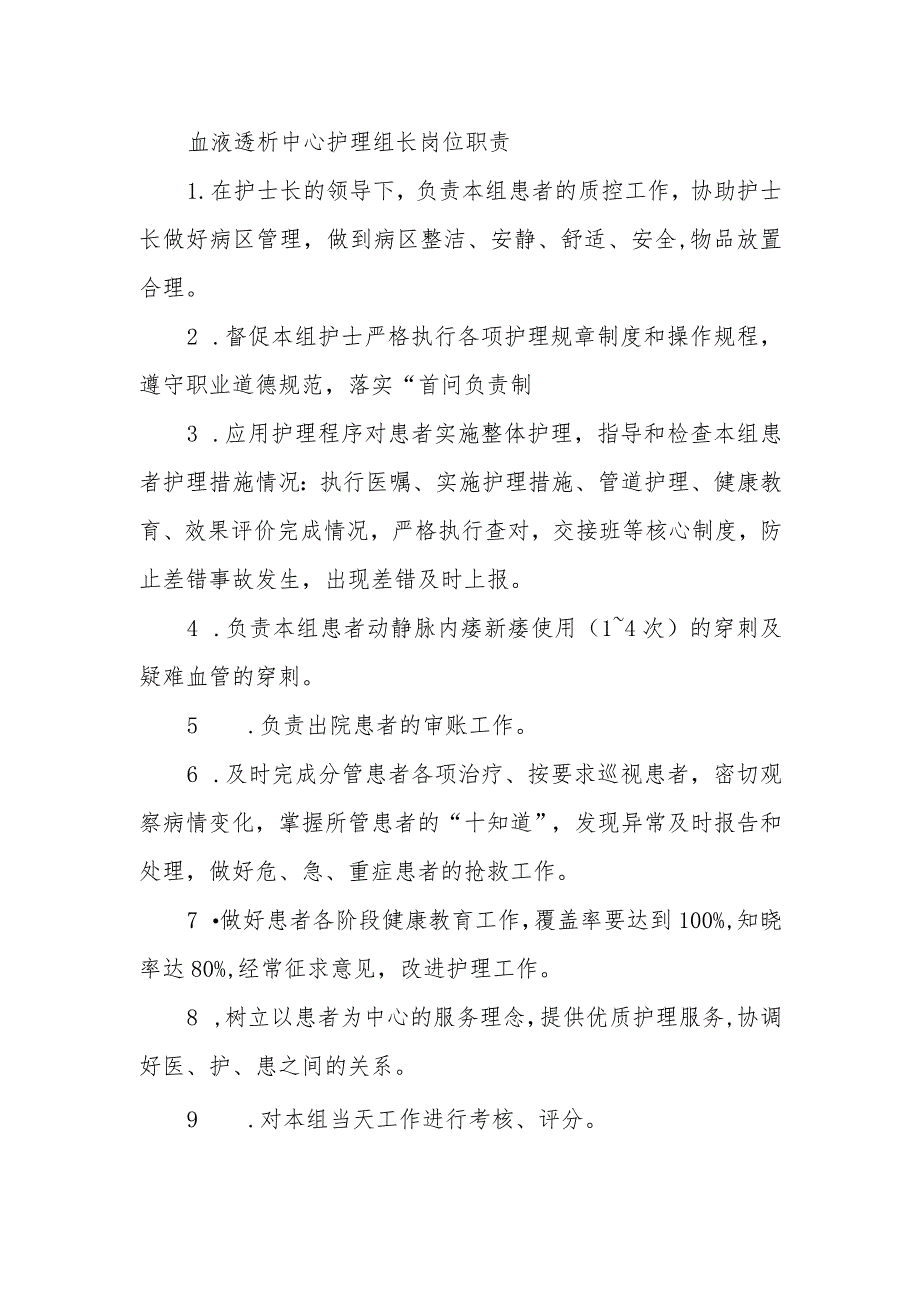 血液透析中心护理组长岗位职责
1.在护士长的领导下，负责本组患者的质控工作，协助护士
长做好病区管理，做到病区整洁、安静、舒适、安全,物品放置
合理。
2 .督促本组护士严格执行各项护理规章制度和操作规程，
遵守职业道德规范，落实“首问负责制
3 .应用护理程序对患者实施整体护理，指导和检查本组患
者护理措施情况：执行医嘱、实施护理措施、管道护理、健康教
育、效果评价完成情况，严格执行查对，交接班等核心制度，防
止差错事故发生，出现差错及时上报。
4 .负责本组患者动静脉内瘘新瘘使用（1~4 次）的穿刺及
疑难血管的穿刺。
5 .负责出院患者的审账工作。
6 .及时完成分管患者各项治疗、按要求巡视患者，密切观
察病情变化，掌握所管患者的“十知道”，发现异常及时报告和
处理，做好危、急、重症患者的抢救工作。
7 •做好患者各阶段健康教育工作,覆盖率要达到 100%,知晓
率达 80%,经常征求意见，改进护理工作。
8 ,树立以患者为中心的服务理念,提供优质护理服务,协调
好医、护、患之间的关系。
9 .对本组当天工作进行考核、评分。